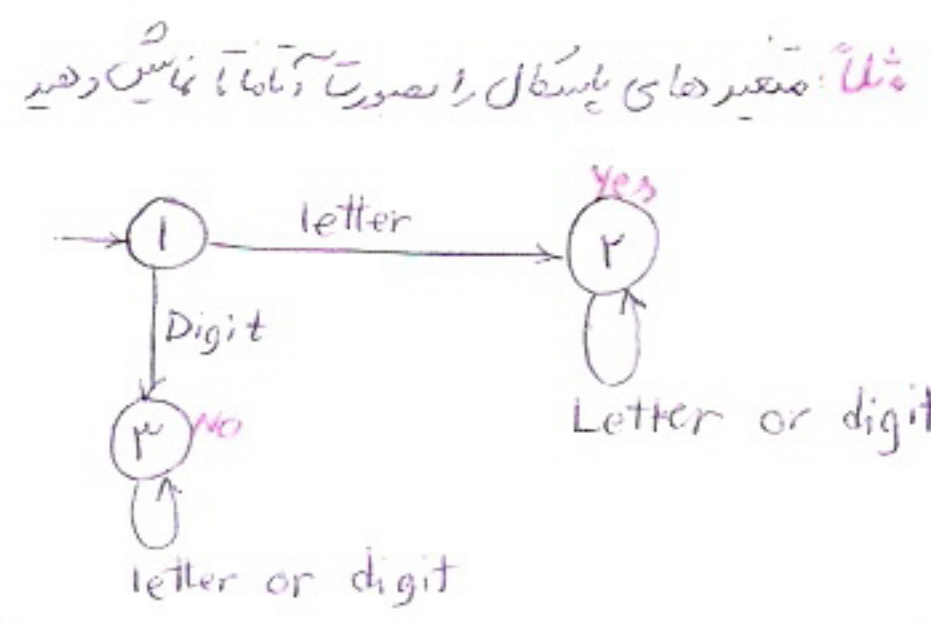 مثلاً: متغیرهای پاسکال را بصورت آتاماتا نمایش دهید
Yes
۱ letter ۲
Digit
۳ No
Letter or digit
letter or digit